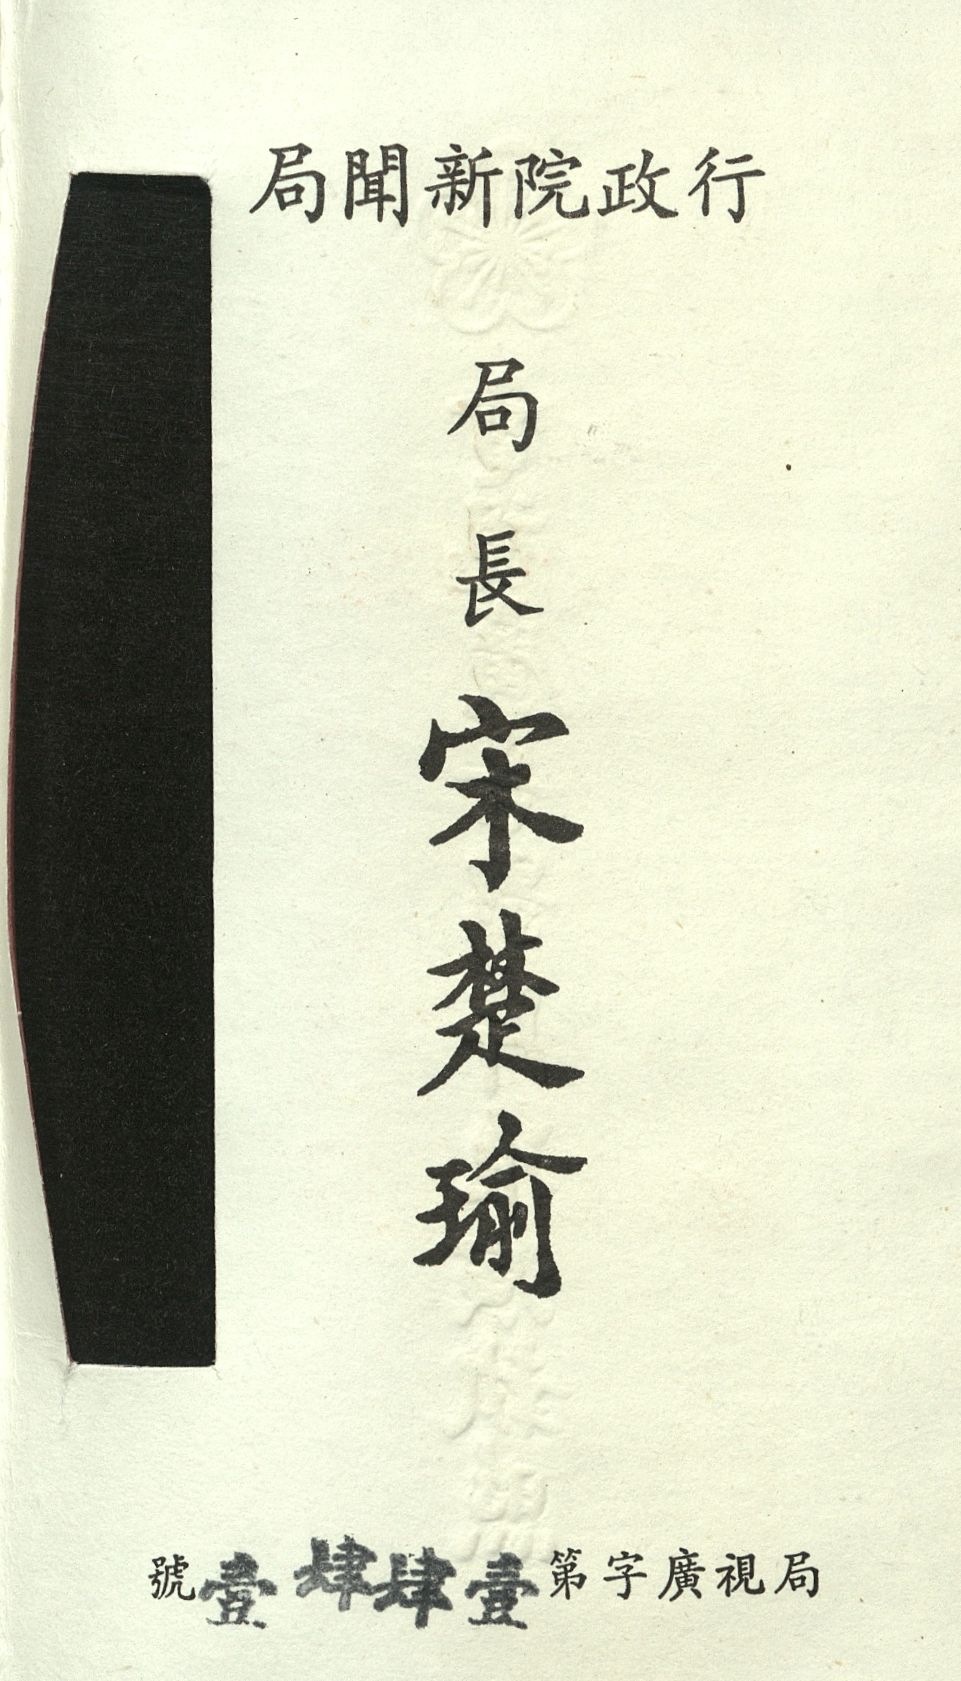 行政院新聞局
局長
宋楚瑜
局視廣字第壹肆肆壹號